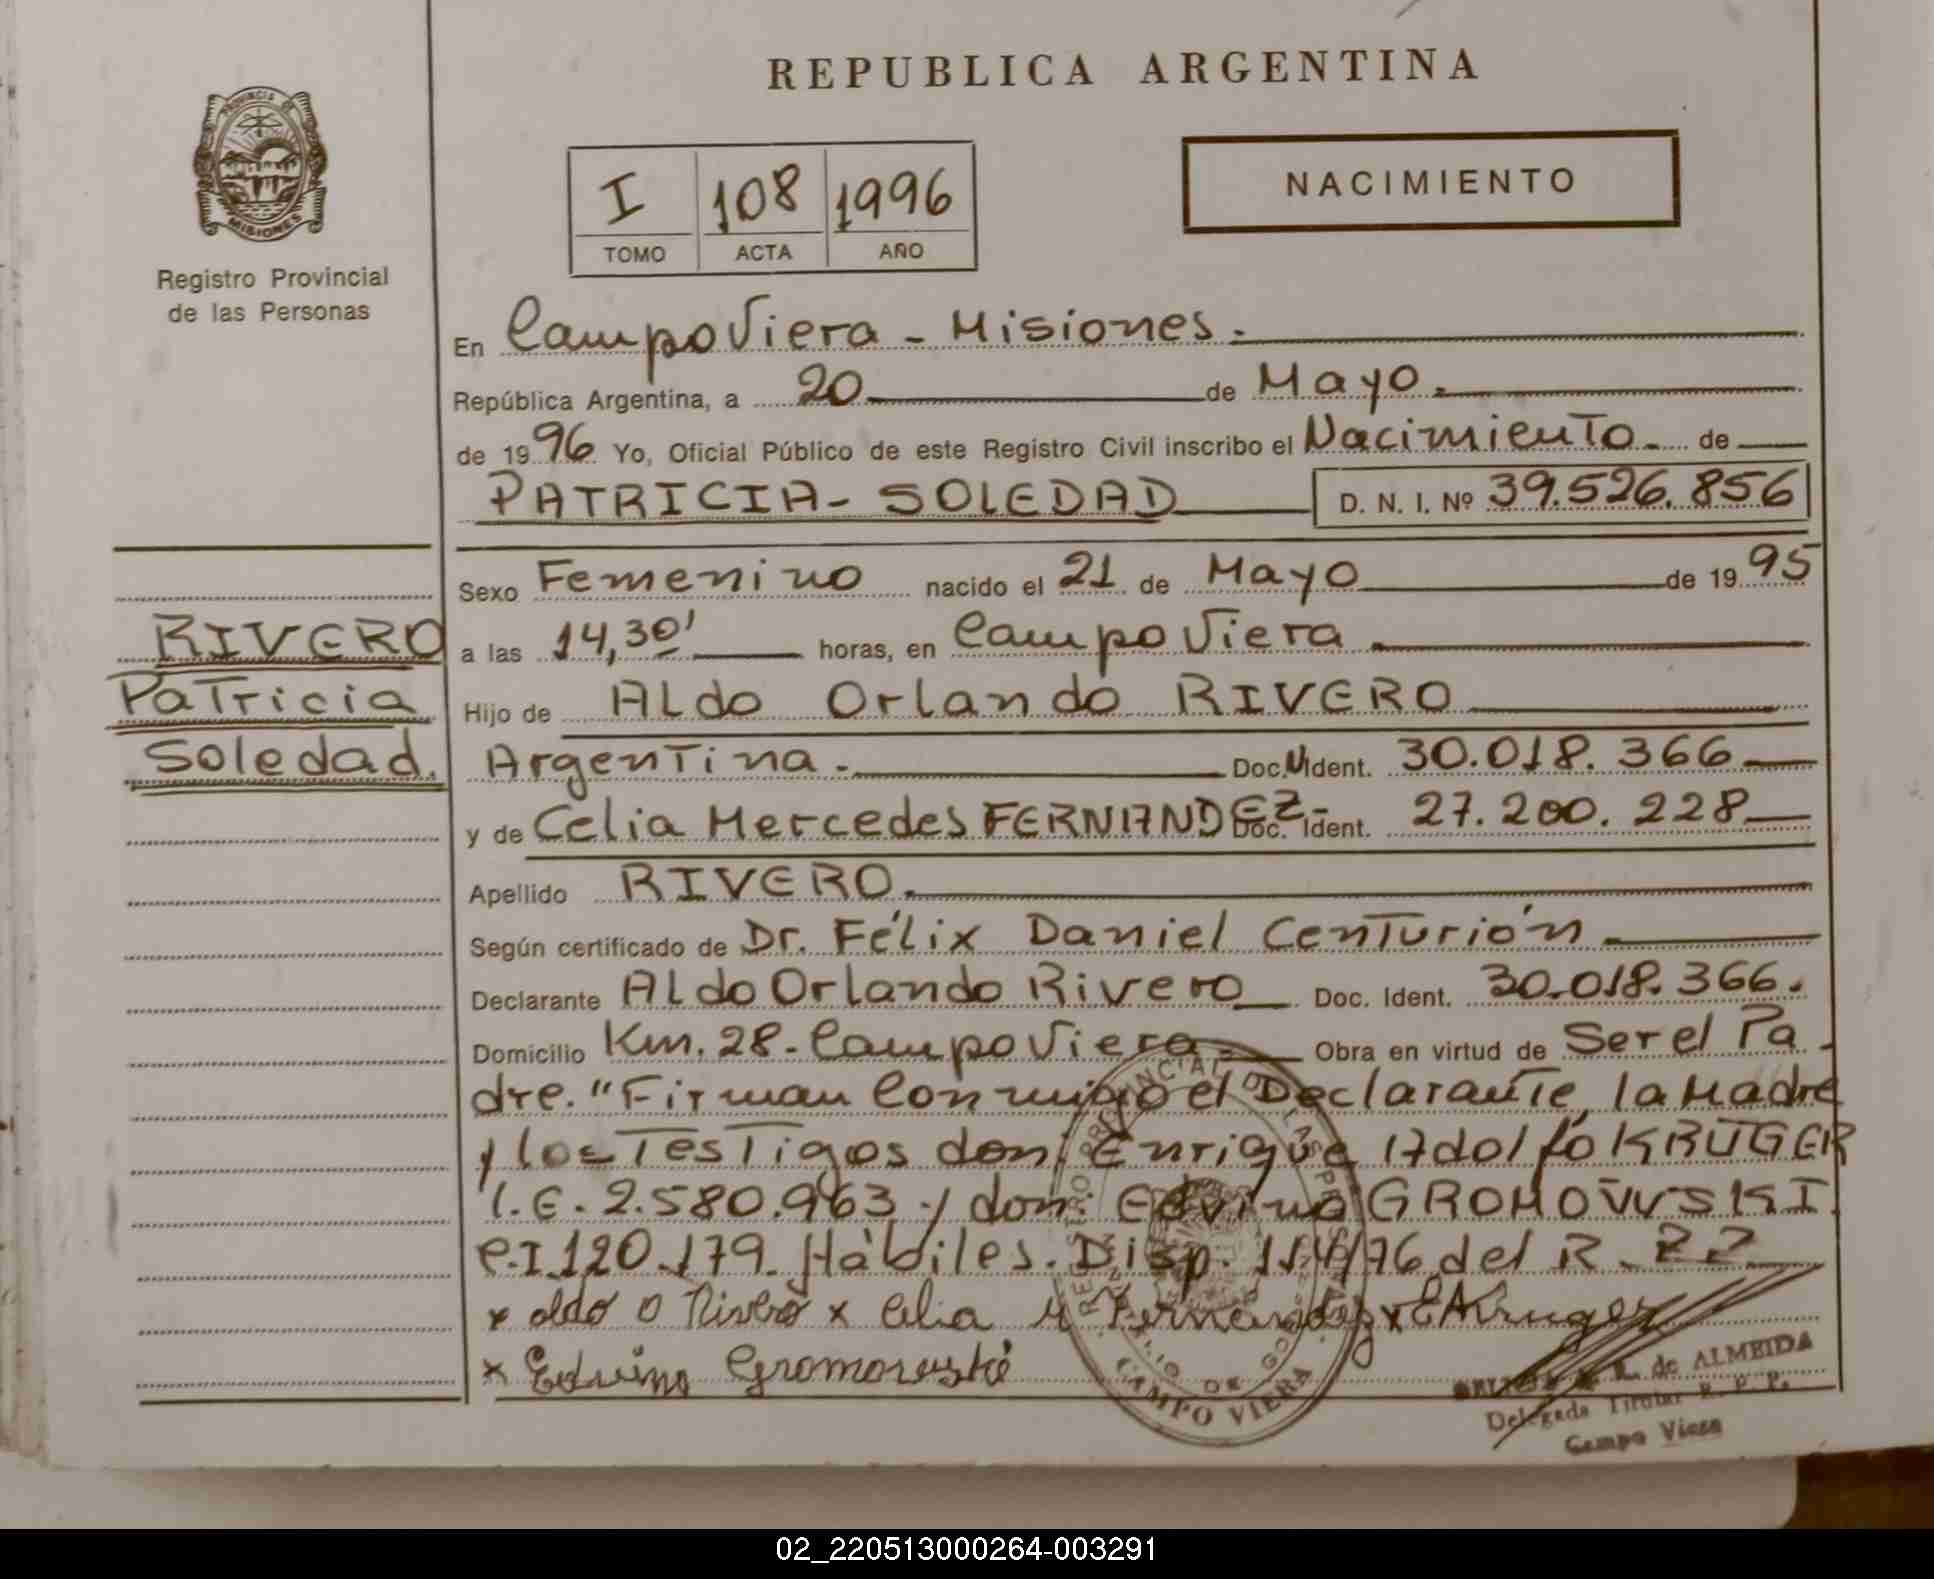 REPUBLICA ARGENTINA
PROVINCIA DE
MISIONES
Registro Provincial
de las Personas
I 108 1996
TOMO ACTA AÑO
NACIMIENTO
En Campo Viera - Misiones.
República Argentina, a 20 de Mayo.
de 1996 Yo, Oficial Público de este Registro Civil inscribo el Nacimiento de
PATRICIA - SOLEDAD D. N. I. Nº 39.526.856
Sexo Femenino nacido el 21 de Mayo de 1995
a las 14,30' horas, en Campo Viera
Hijo de Aldo Orlando RIVERO
Argentina. Doc. Ident. 30.018.366
y de Celia Mercedes FERNANDEZ- Doc. Ident. 27.200.228
Apellido RIVERO.
Según certificado de Dr. Félix Daniel Centurión
Declarante Aldo Orlando Rivero Doc. Ident. 30.018.366.
Domicilio Km. 28 - Campo Viera Obra en virtud de Ser el Pa
dre. "Firman Conmigo el Declarante, la Madre
y los Testigos don: Enrique Adolfo KRÜGER
L.E. 2.580.963 y don: Edvino GROMOWSKI
C.I 120.179. Hábiles. Disp. 114/76 del R. P. P.
x Aldo O Rivero x Celia M Fernandez x E A Kruger
x Edvino Gromowski
RIVERO
Patricia
Soledad.
CAMPO VIERA
de ALMEIDA
Delegada Titular R. P. P.
Campo Viera
02_220513000264-003291